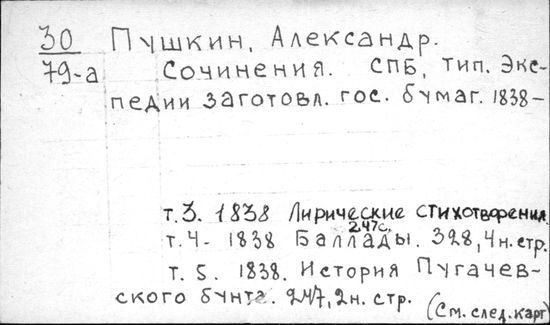 30 Пушкин, Александр.
79-а Сочинения. СПБ, тип. Экс-
педии заготовл. гос. бумаг. 1838-
т.3. 1838 Лирические стихотворения.
247с.
т.4- 1838 Баллады. 328,4н.стр.
т. 5. 1838. История Пугачев-
ского бунта. 247,2н. стр.
(См. след. карт)